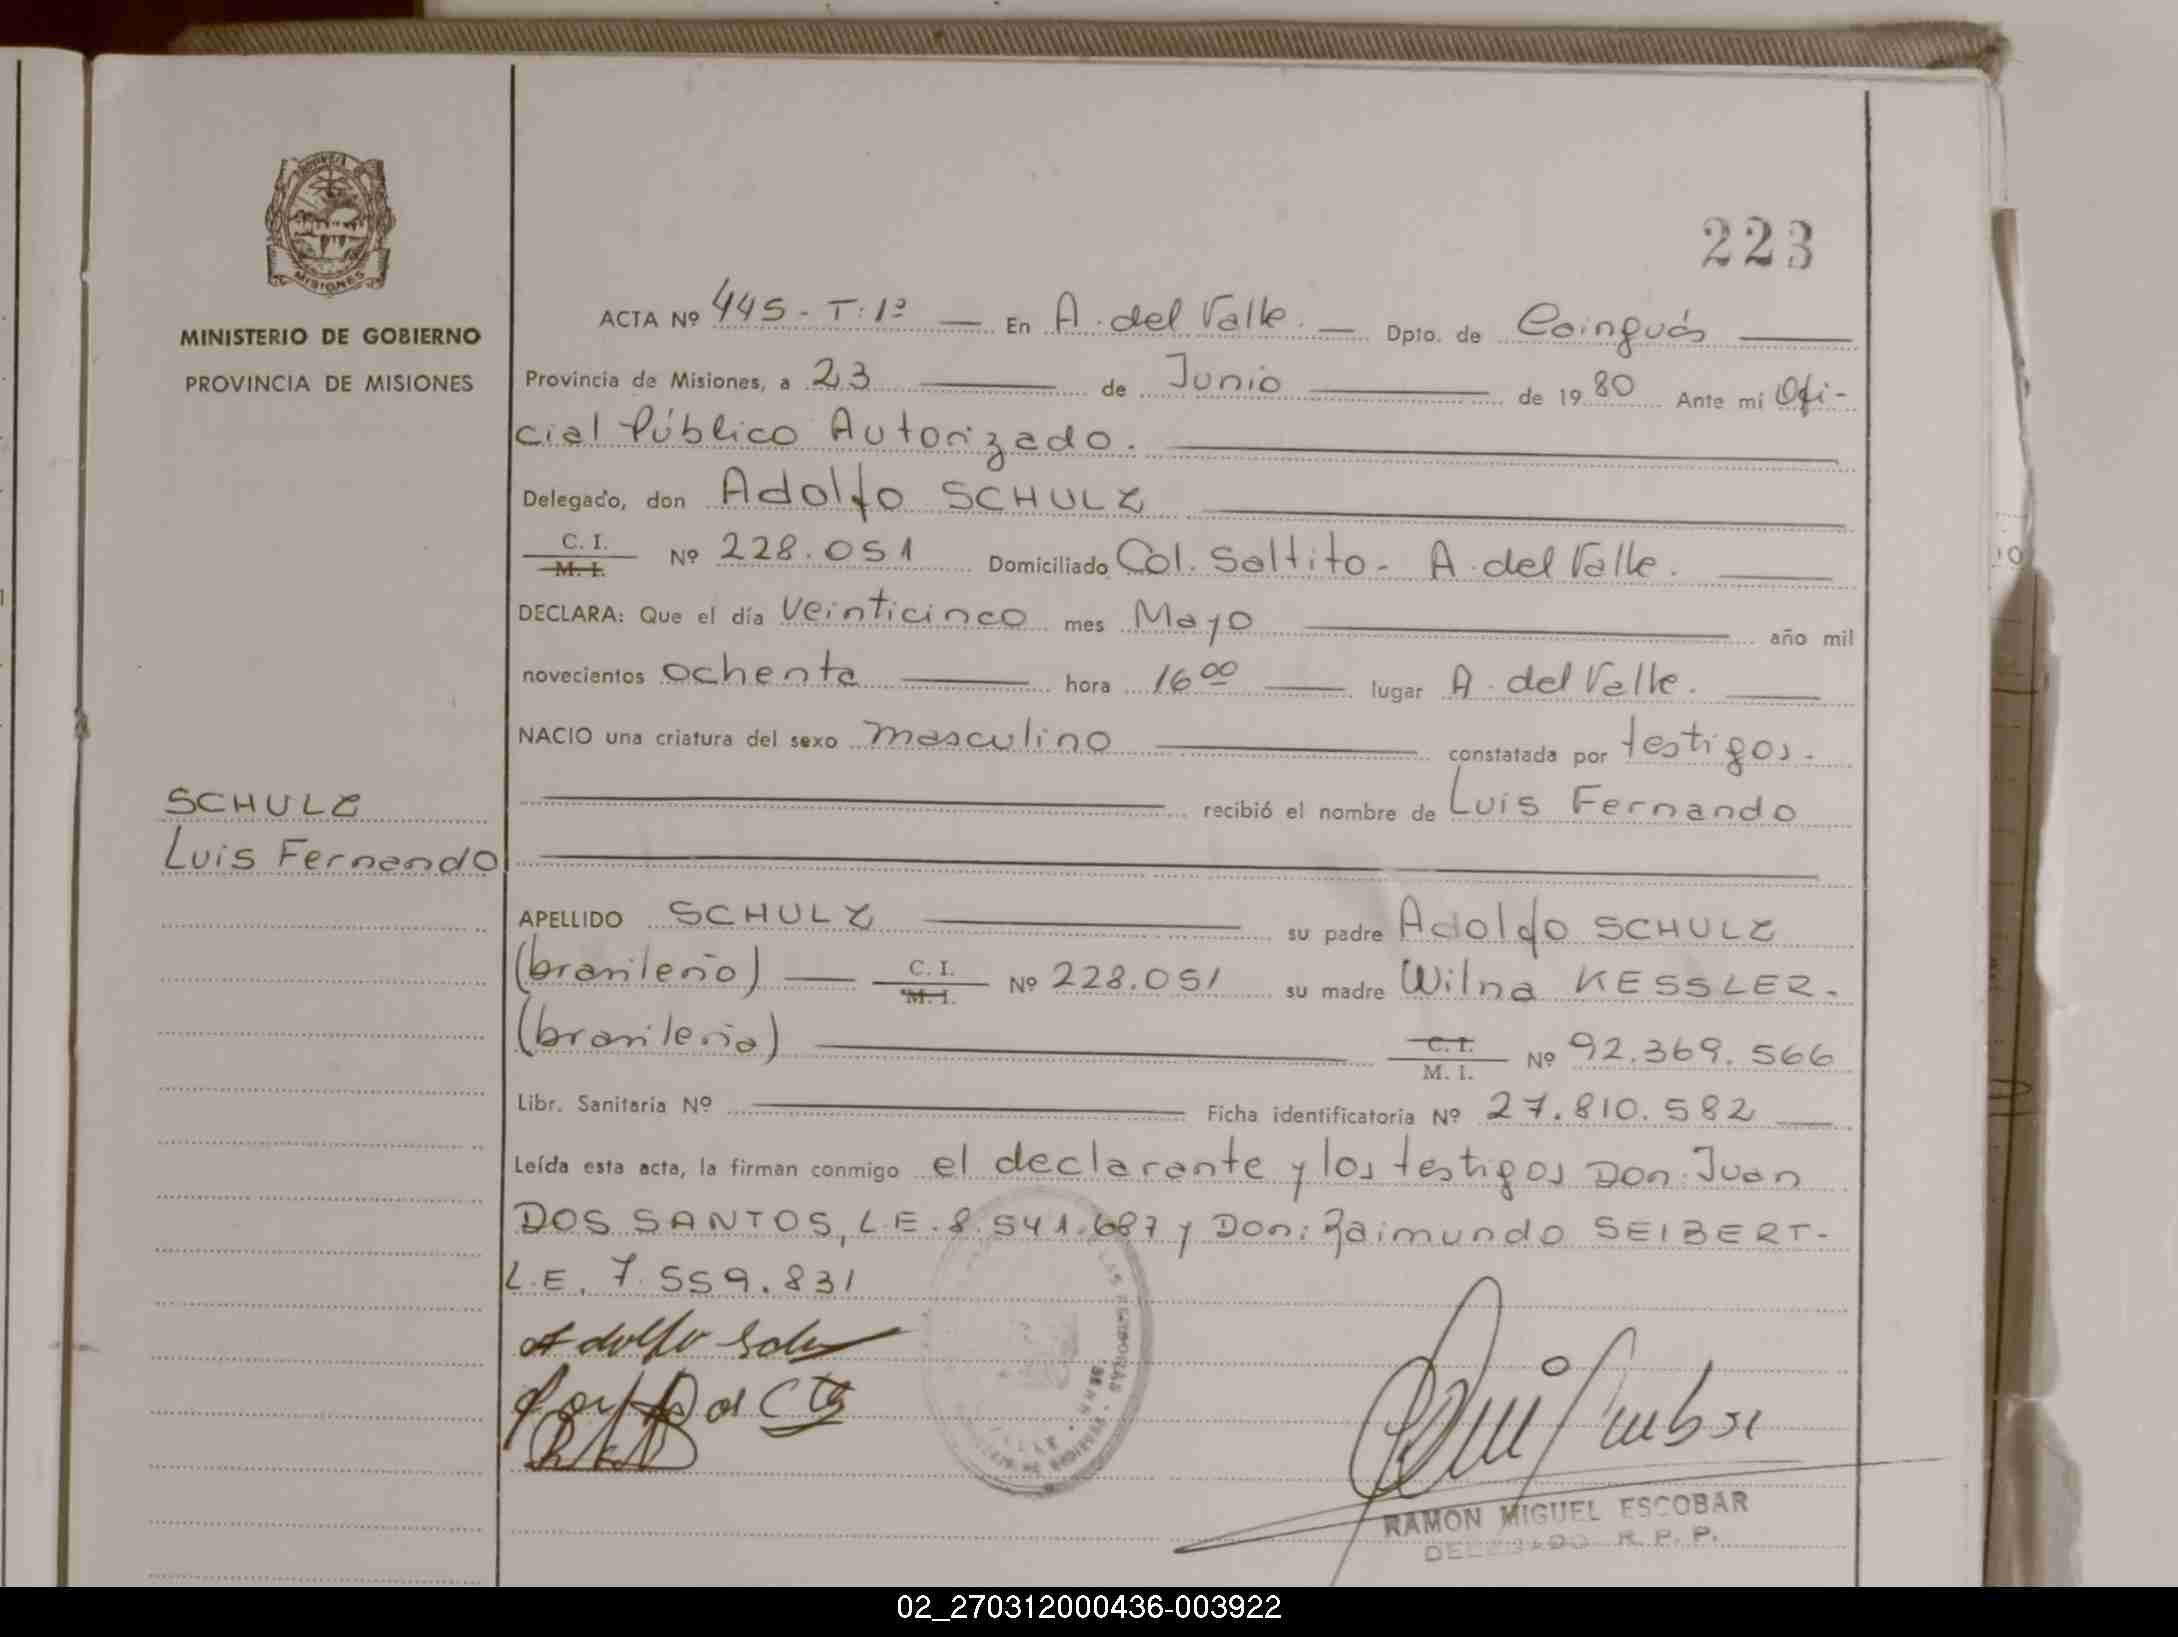 223
MISIONES
MINISTERIO DE GOBIERNO
PROVINCIA DE MISIONES
SCHULZ
Luis Fernando
ACTA Nº 445 - T: 1º — En A. del Valle. — Dpto. de Cainguás
Provincia de Misiones, a 23 — de Junio — de 1980 Ante mi Ofi-
cial Público Autorizado.
Delegado, don Adolfo SCHULZ
C. I. M. I. Nº 228.051 Domiciliado Col. Saltito - A. del Valle.
DECLARA: Que el día veinticinco mes Mayo — año mil
novecientos ochenta — hora 16 00 — lugar A. del Valle.
NACIO una criatura del sexo masculino — constatada por testigos.
recibió el nombre de Luis Fernando
APELLIDO SCHULZ — su padre Adolfo SCHULZ
(brasileño) — C. I. M. I. Nº 228.051 su madre Wilna KESSLER.
(brasileña) — C. I. M. I. Nº 92.369.566
Libr. Sanitaria Nº — Ficha identificatoria Nº 27.810.582
Leída esta acta, la firman conmigo el declarante y los testigos Don: Juan
DOS SANTOS, L.E. 8.541.687 y Don: Raimundo SEIBERT-
L.E. 7.559.831
Adolfo
RAMON MIGUEL ESCOBAR
DELEGADO R. P. P.
02_270312000436-003922